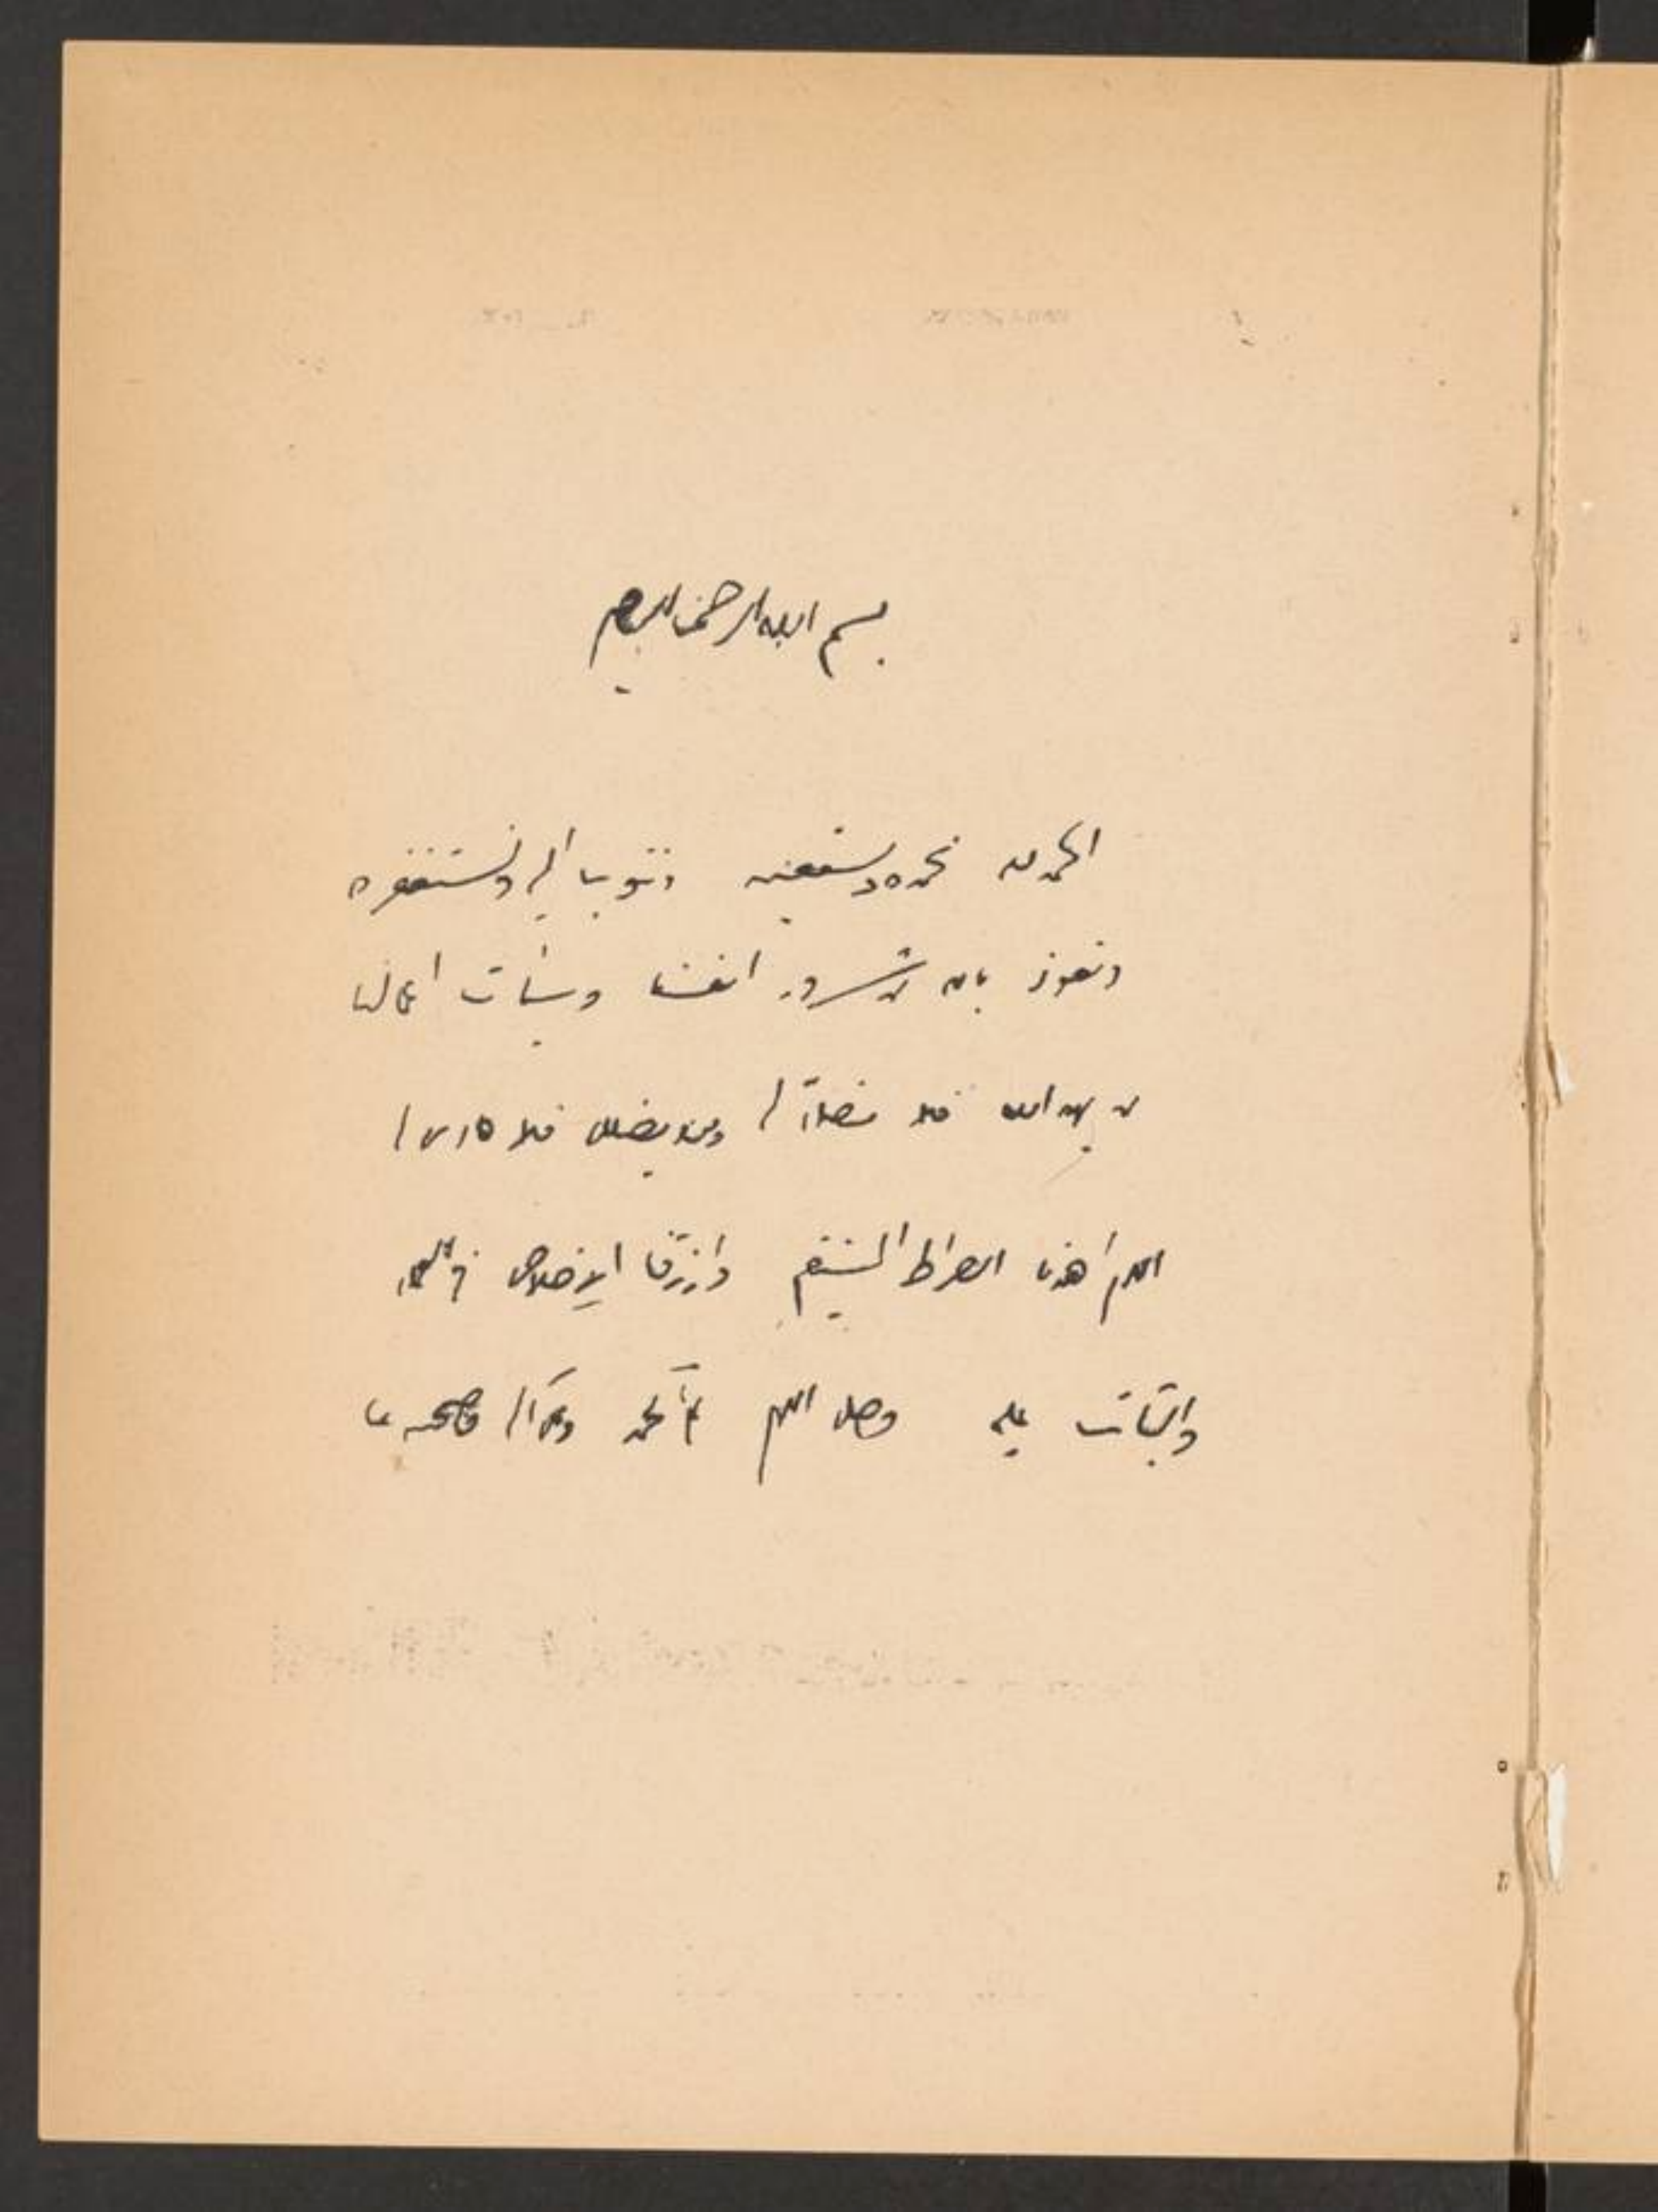 بسم الله الرحمن الرحيم
الحمد لله نحمده ونستعينه ونتوب إليه ونستغفره
ونعوذ بالله من شرور أنفسنا وسيئات أعمالنا
من يهد الله فلا مضل له ومن يضلل فلا هادي له
اللهم اهدنا الصراط المستقيم وارزقنا الإخلاص في
والثبات عليه وصل اللهم على محمد وعلى آله وصحبه